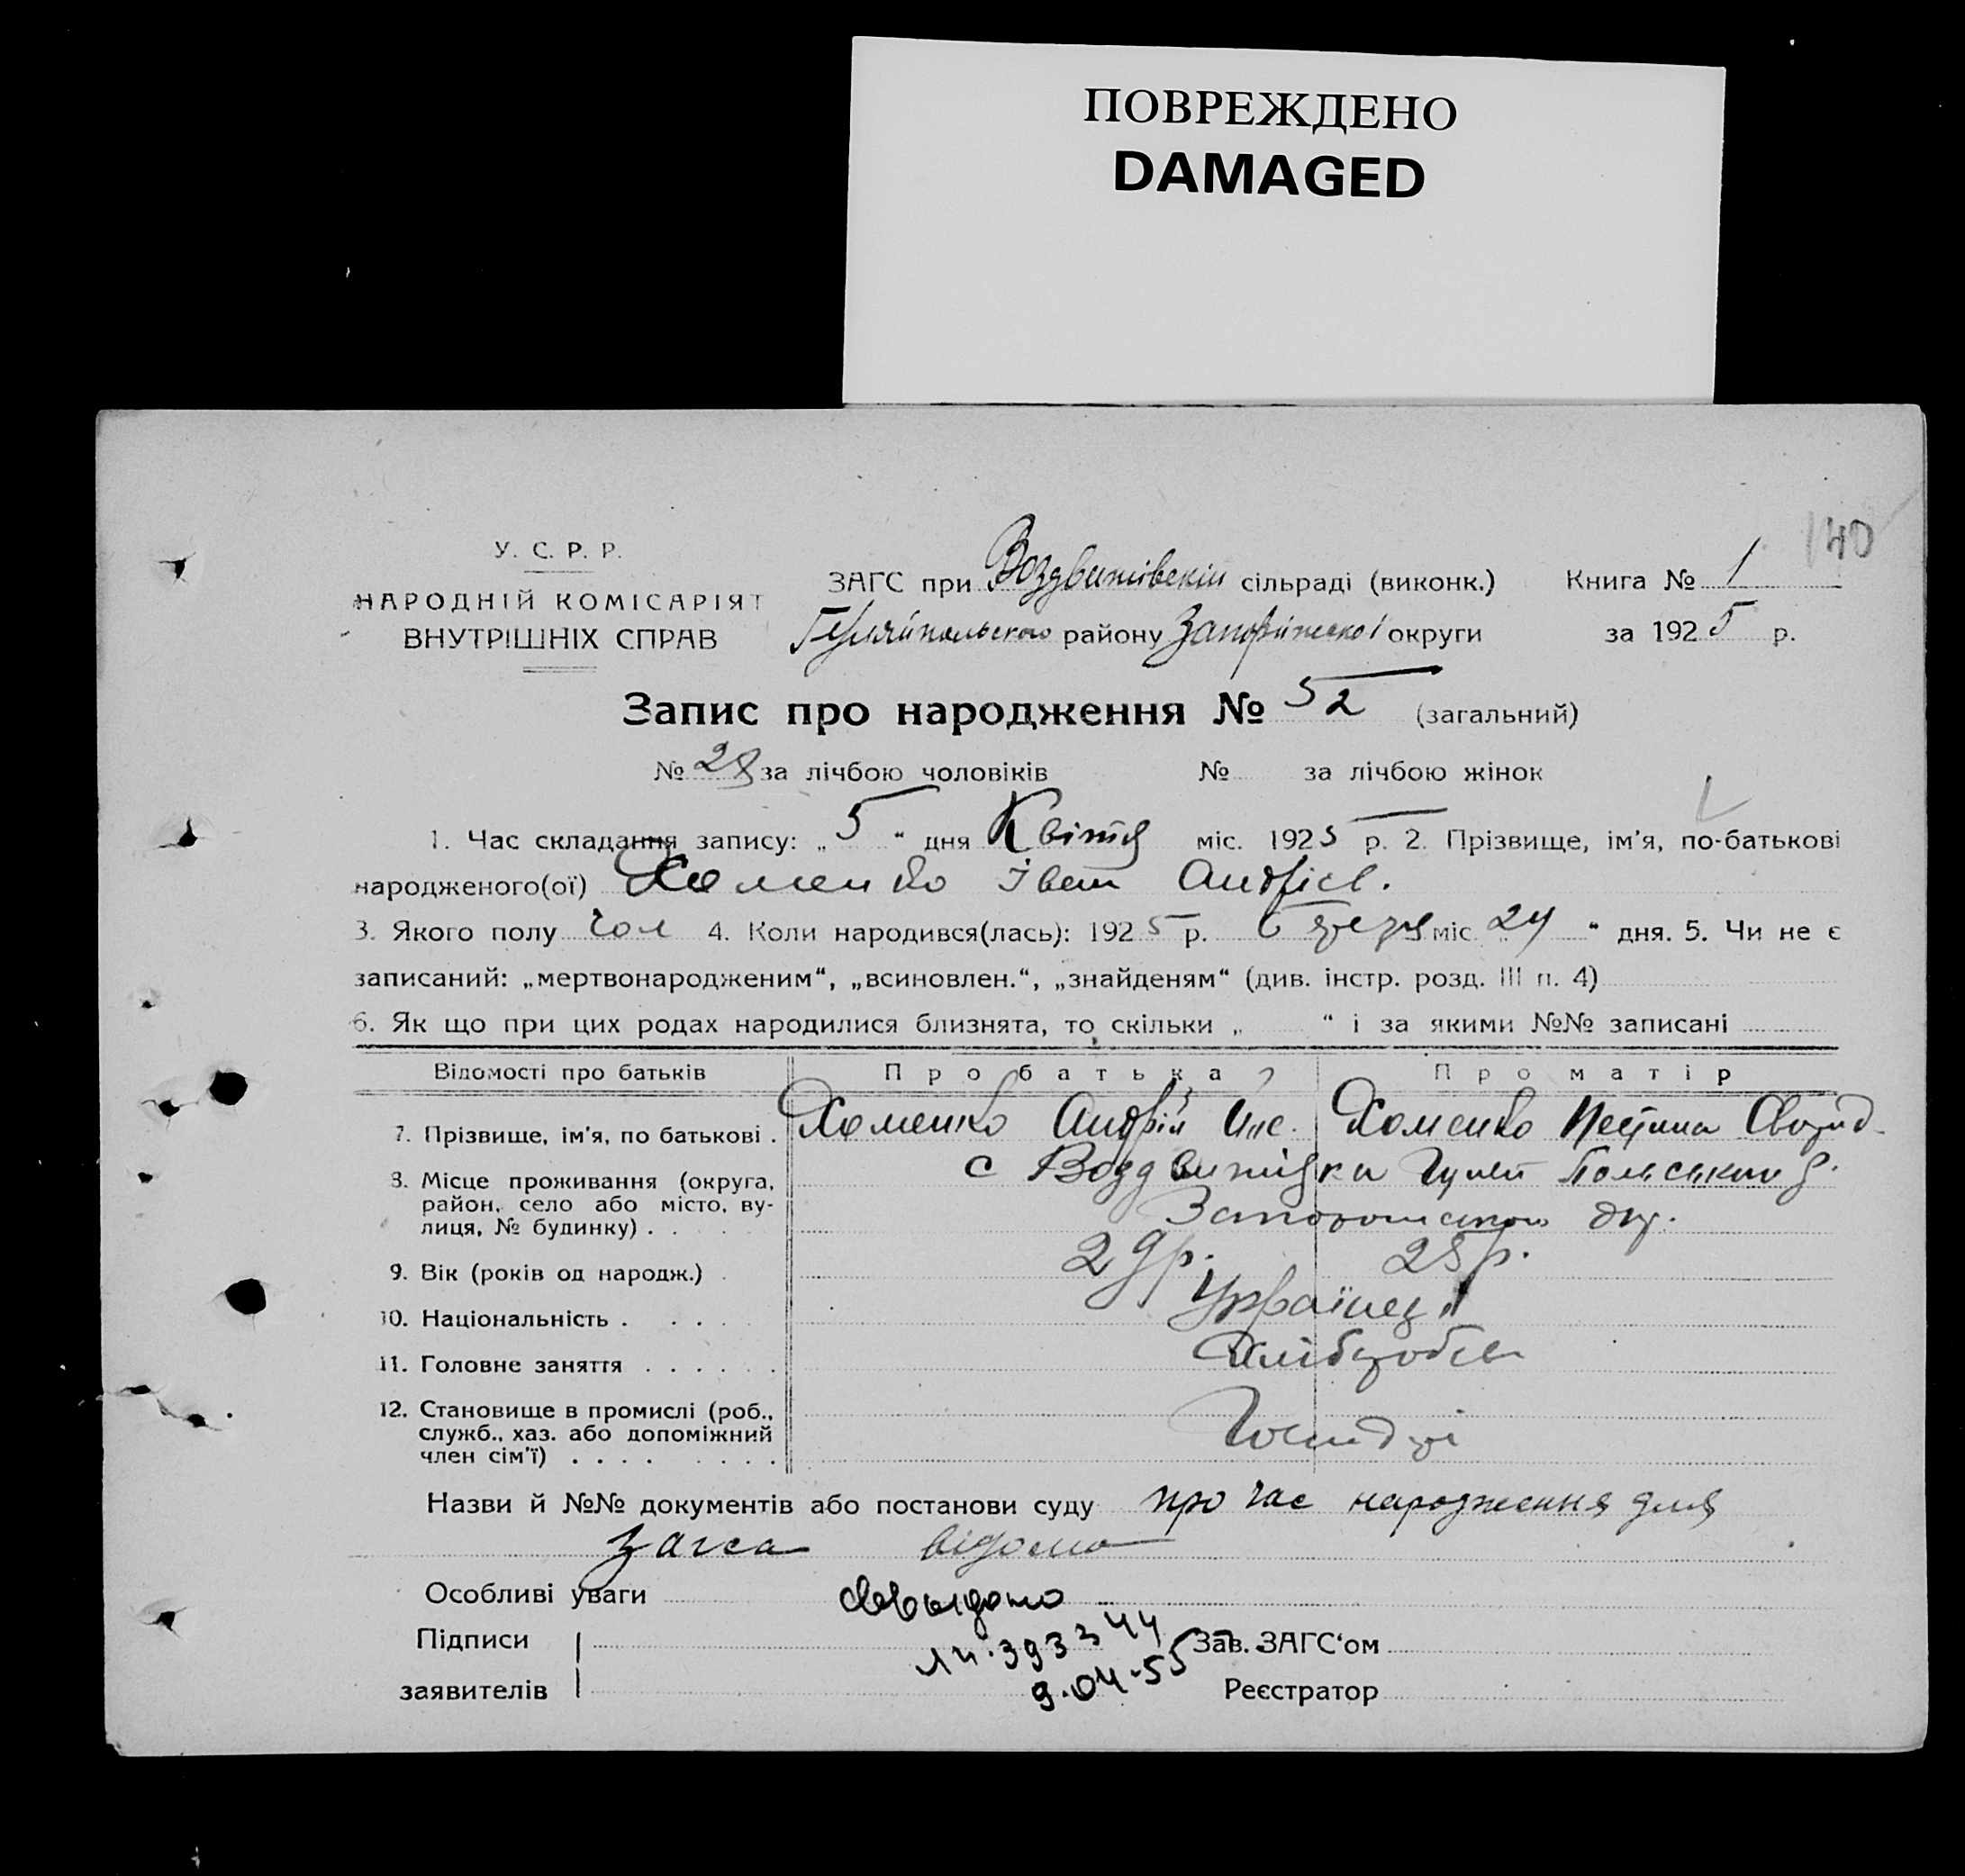 ПОВРЕЖДЕНО
DAMAGED
140
У. С. Р. Р.
НАРОДНІЙ КОМІСАРІЯТ
ВНУТРІШНІХ СПРАВ
ЗАГС при Воздвижівській сільраді (виконк.) Книга № 1
Гуляйпольского району Запоріжської округи за 1925 р.
Запис про народження № 52 (загальний)
№ 28 за лічбою чоловіків № за лічбою жінок
1. Час складання запису: „5“ дня Квітня міс. 1925 р. 2. Прізвище, ім'я, по-батькові
народженого(ої) Хоменко Іван Андрієв.
3. Якого полу чол 4. Коли народився(лась): 1925 р. березня міс „24“ дня. 5. Чи не є
записаний: „мертвонародженим“, „всиновлен.“, „знайденям“ (див. інстр. розд. III п. 4)
6. Як що при цих родах народилися близнята, то скільки „ “ і за якими №№ записані
Відомості про батьків Про батька Про матір
7. Прізвище, ім'я, по батькові . Хоменко Андрій Хоменко
8. Місце проживання (округа, район, село або місто, вулиця, № будинку) . . с Воздвижівка Гуляй Польський р.
окр.
9. Вік (років од народж.) . 29 р. 25 р.
10. Національність . . . . . Українец
11. Головне заняття . . . . . . Хлібороби
12. Становище в промислі (роб., служб., хаз. або допоміжний член сім'ї) . . . . . . . .
Назви й №№ документів або постанови суду про час народження для
загса відомо
Особливі уваги
Підписи
заявителів
393344
9.04.55
Зав. ЗАГС‘ом
Реєстратор